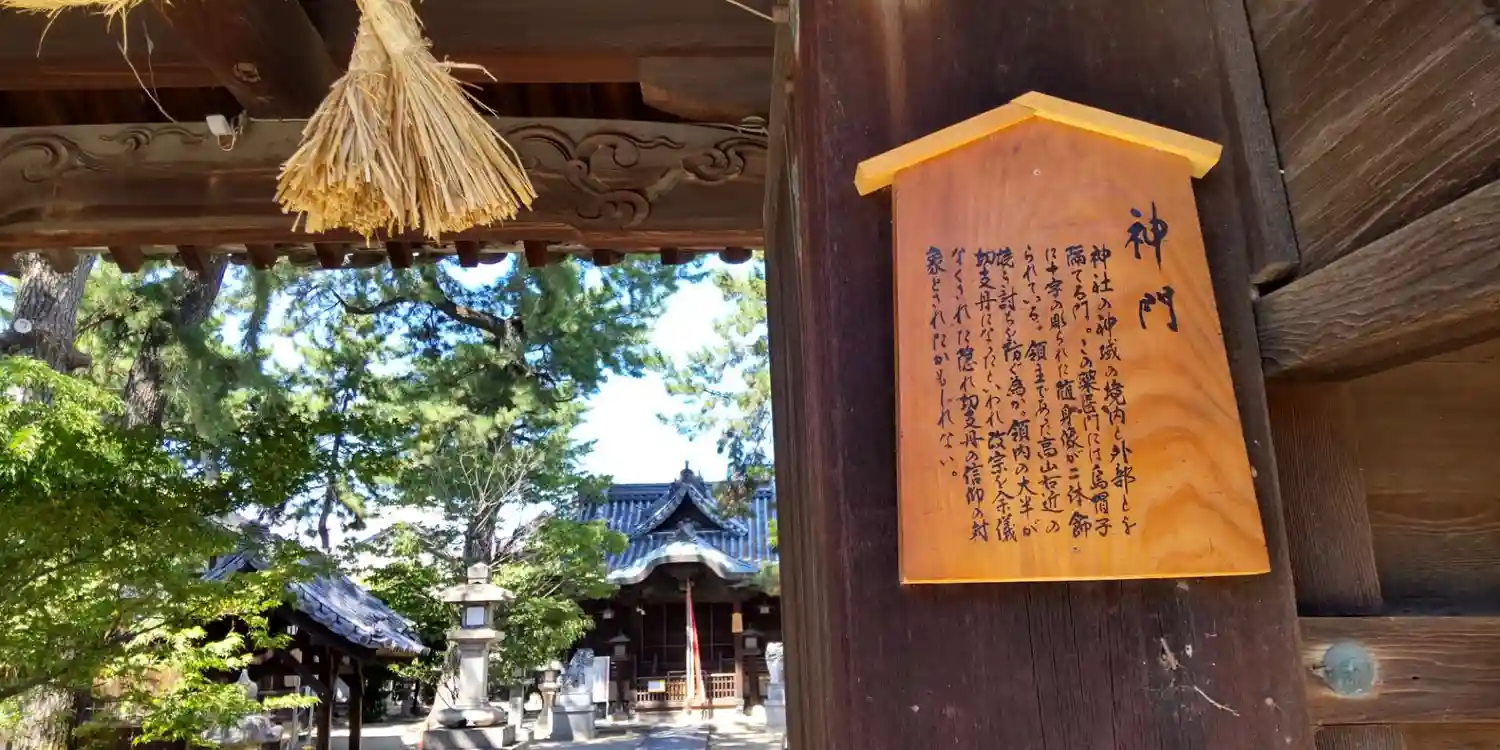 神門
神社の神域の境内と外部とを
隔てる門。この薬医門には烏帽子
に十字の彫られた随身像が二体飾
られている。領主であった高山右近の
焼き討ちを防ぐ為か、領内の大半が
切支丹になったといわれ改宗を余儀
なくされた隠れ切支丹の信仰の対
象とされたかもしれない。